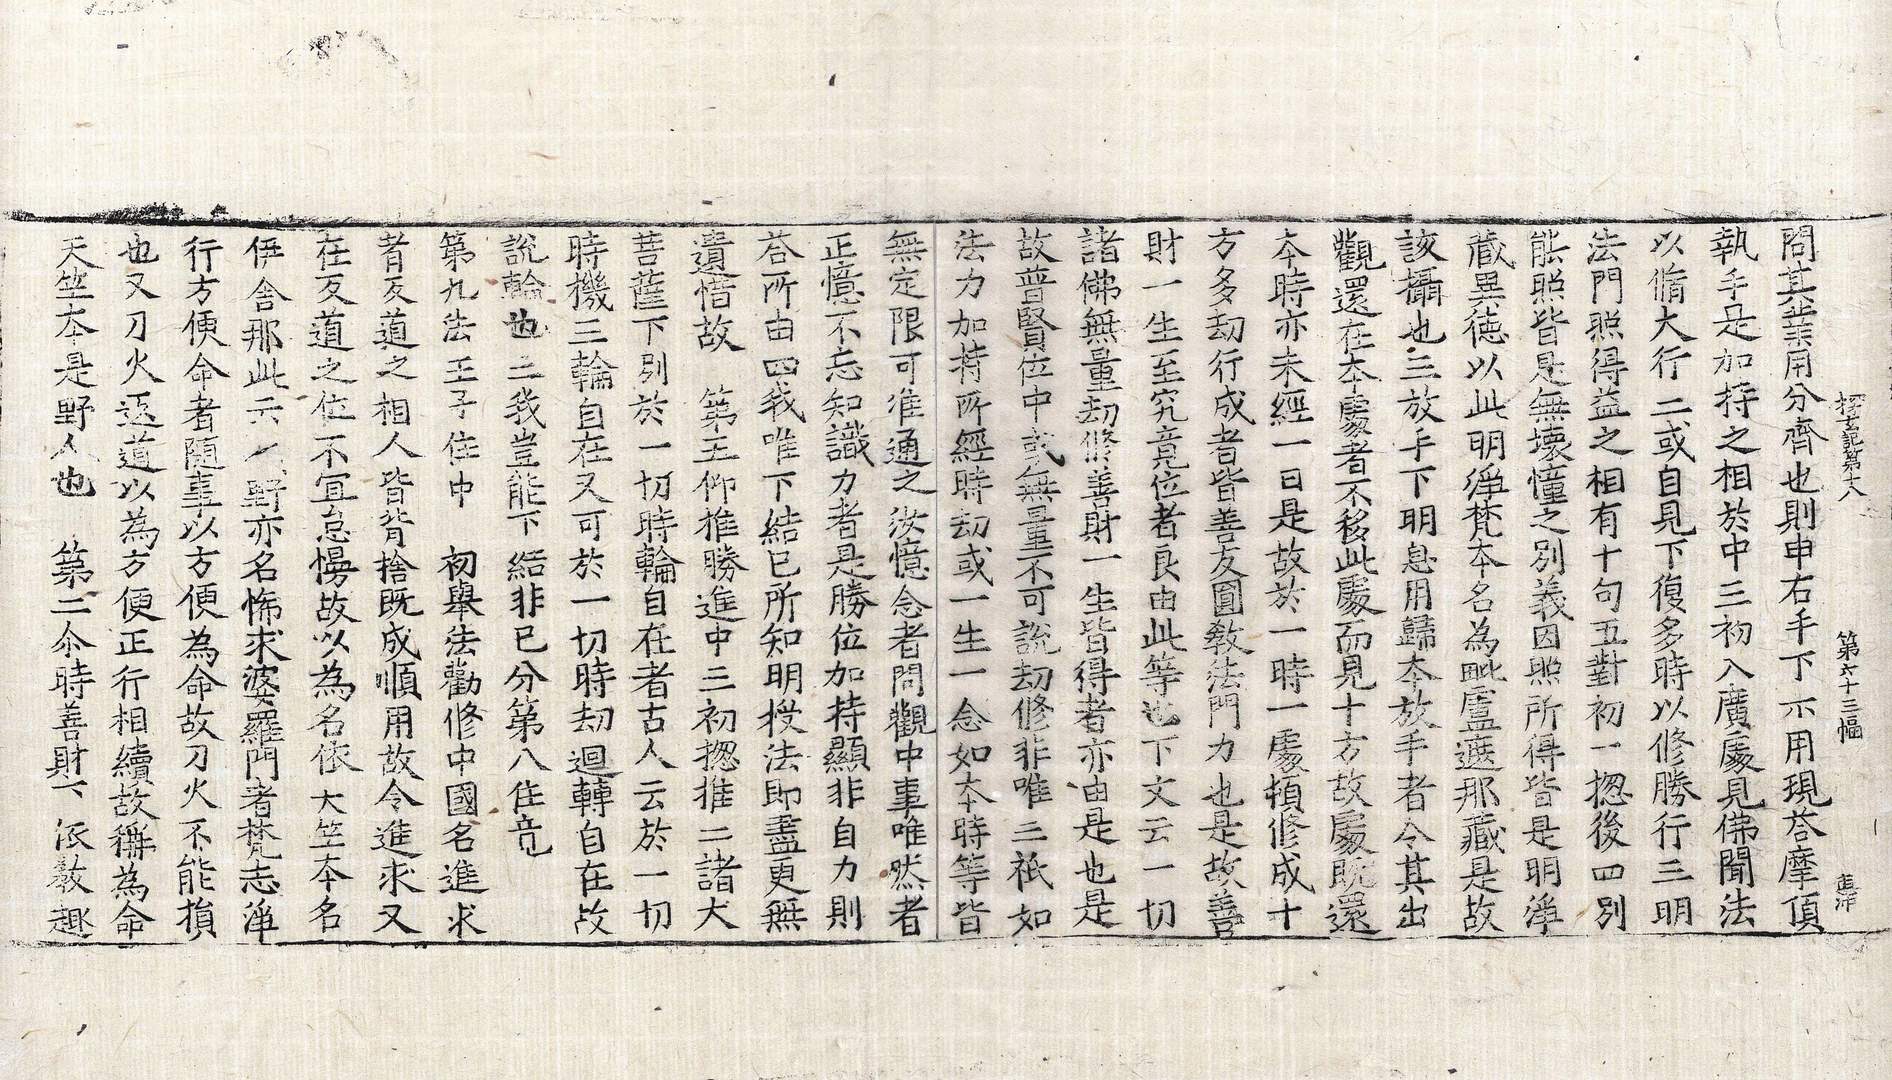 探玄記第十八　第六十三幅　直浄
問其業用分齊也則申右手下示用現答摩頂
執手是加持之相於中三初入廣處見佛聞法
以脩大行二或自見下復多時以修勝行三明
法門照得益之相有十句五對初一揔後四別
能照皆是無壊憧之別義因照所得皆是明淨
藏異徳以此明淨梵本名為毗盧遮那藏是故
該攝也三放手下明息用歸本放手者令其出
觀還在本處者不移此處而見十方故處既還
本時亦未經一日是故於一時一處頓修成十
方多刧行成者皆善友圓敎法門力也是故善
財一生至究竟位者良由此等也下文云一切
諸佛無量刧修善財一生皆得者亦由是也是
故普賢位中或無量不可說刧修非唯三祇如
法力加持所經時刧或一生一念如本時等皆
無定限可准通之汝憶念者問觀中事唯然者
正憶不忘知識力者是勝位加持顯非自力則
荅所由四我唯下結已所知明授法即盡更無
遺惜故　第五仰推勝進中三初揔推二諸大
菩薩下別於一切時輪自在者古人云於一切
時機三輪自在又可於一切時刧迴轉自在故
說輪也三我豈能下結非已分第八住竟
第九法王子住中　初舉法勸修中國名進求
者反道之相人皆背捨既成順用故令進求又
在反道之位不宜怠慢故以為名依天竺本名
伊舍那此云　野亦名怖求婆羅門者梵志淨
行方便命者随事以方便為命故刀火不能損
也又刀火逆道以為方便正行相續故稱為命
天竺本是野人也　第二尒時善財下依敎趣